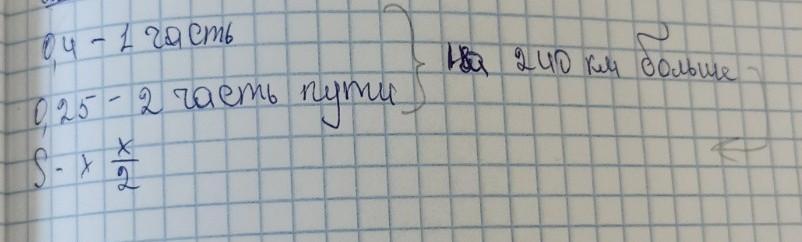 0,4 - 1 часть
0,25 - 2 часть пути
на 240 км больше
S - x x/2